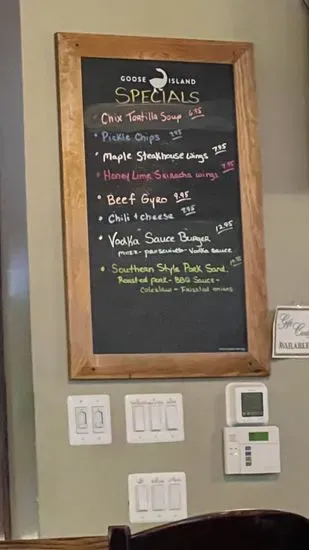 GOOSE ISLAND
SPECIALS
• Chix Tortilla Soup 6.95
• Pickle Chips 7.95
• Maple Steakhouse wings 7.95
• Honey Lime Sriracha wings 7.95
• Beef Gyro 9.95
• Chili & cheese 7.95
• Vodka "Sauce Burger 12.95
mozz - prosciutto - vodka sauce
• Southern Style Pork Sand.
Roasted pork - BBQ Sauce -
Coleslaw - Frizzled onions
Gift
AVAILABLE